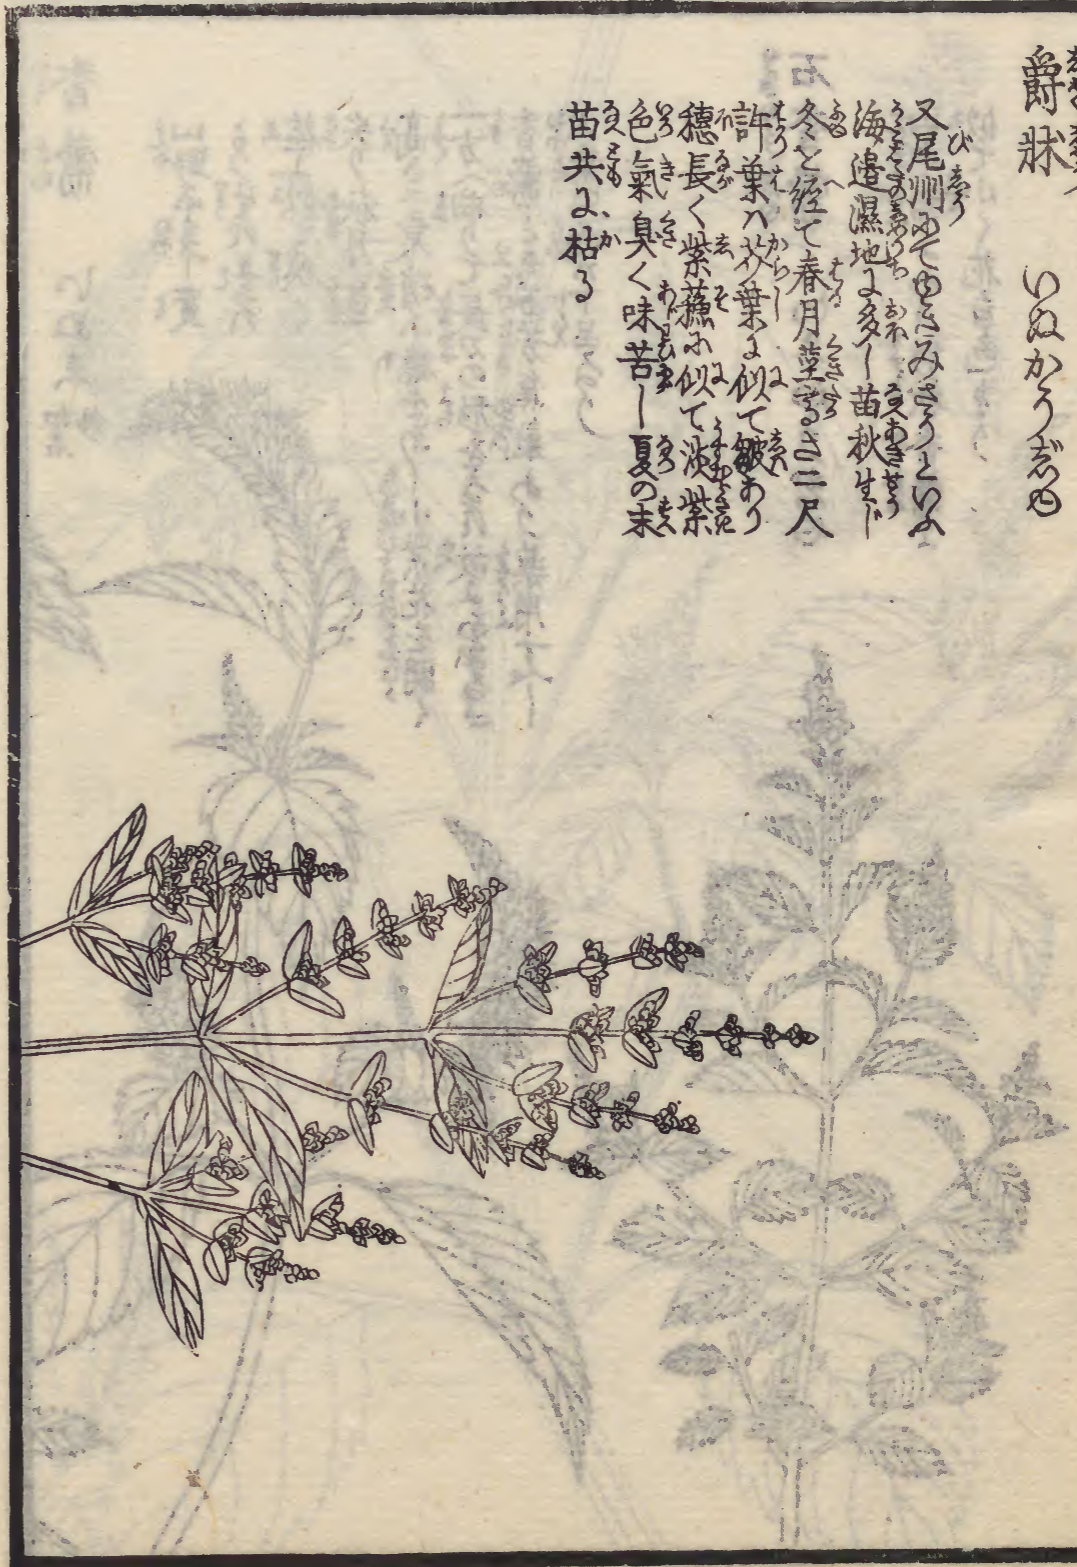 爵牀 いぬかうぢゆ
又尾州にてゆきみさうといふ
海邉濕地に多し苗秋生じ
冬を經て春月莖高さ二尺
許葉ハ芥葉に似て皺あり
穗長く紫蘇に似て淡紫
色氣臭く味苦し夏の末
苗共に枯る